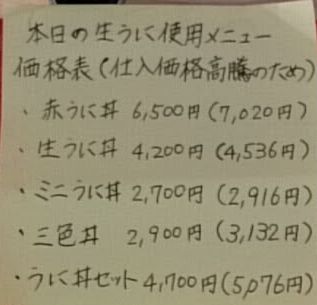 本日の生うに使用メニュー
価格表(仕入価格高騰のため)
・赤うに丼 6,500円(7,020円)
・生うに丼 4,200円(4,536円)
・ミニうに丼 2,700円(2,916円)
・三色丼 2,900円(3,132円)
・うに丼セット 4,700円(5,076円)